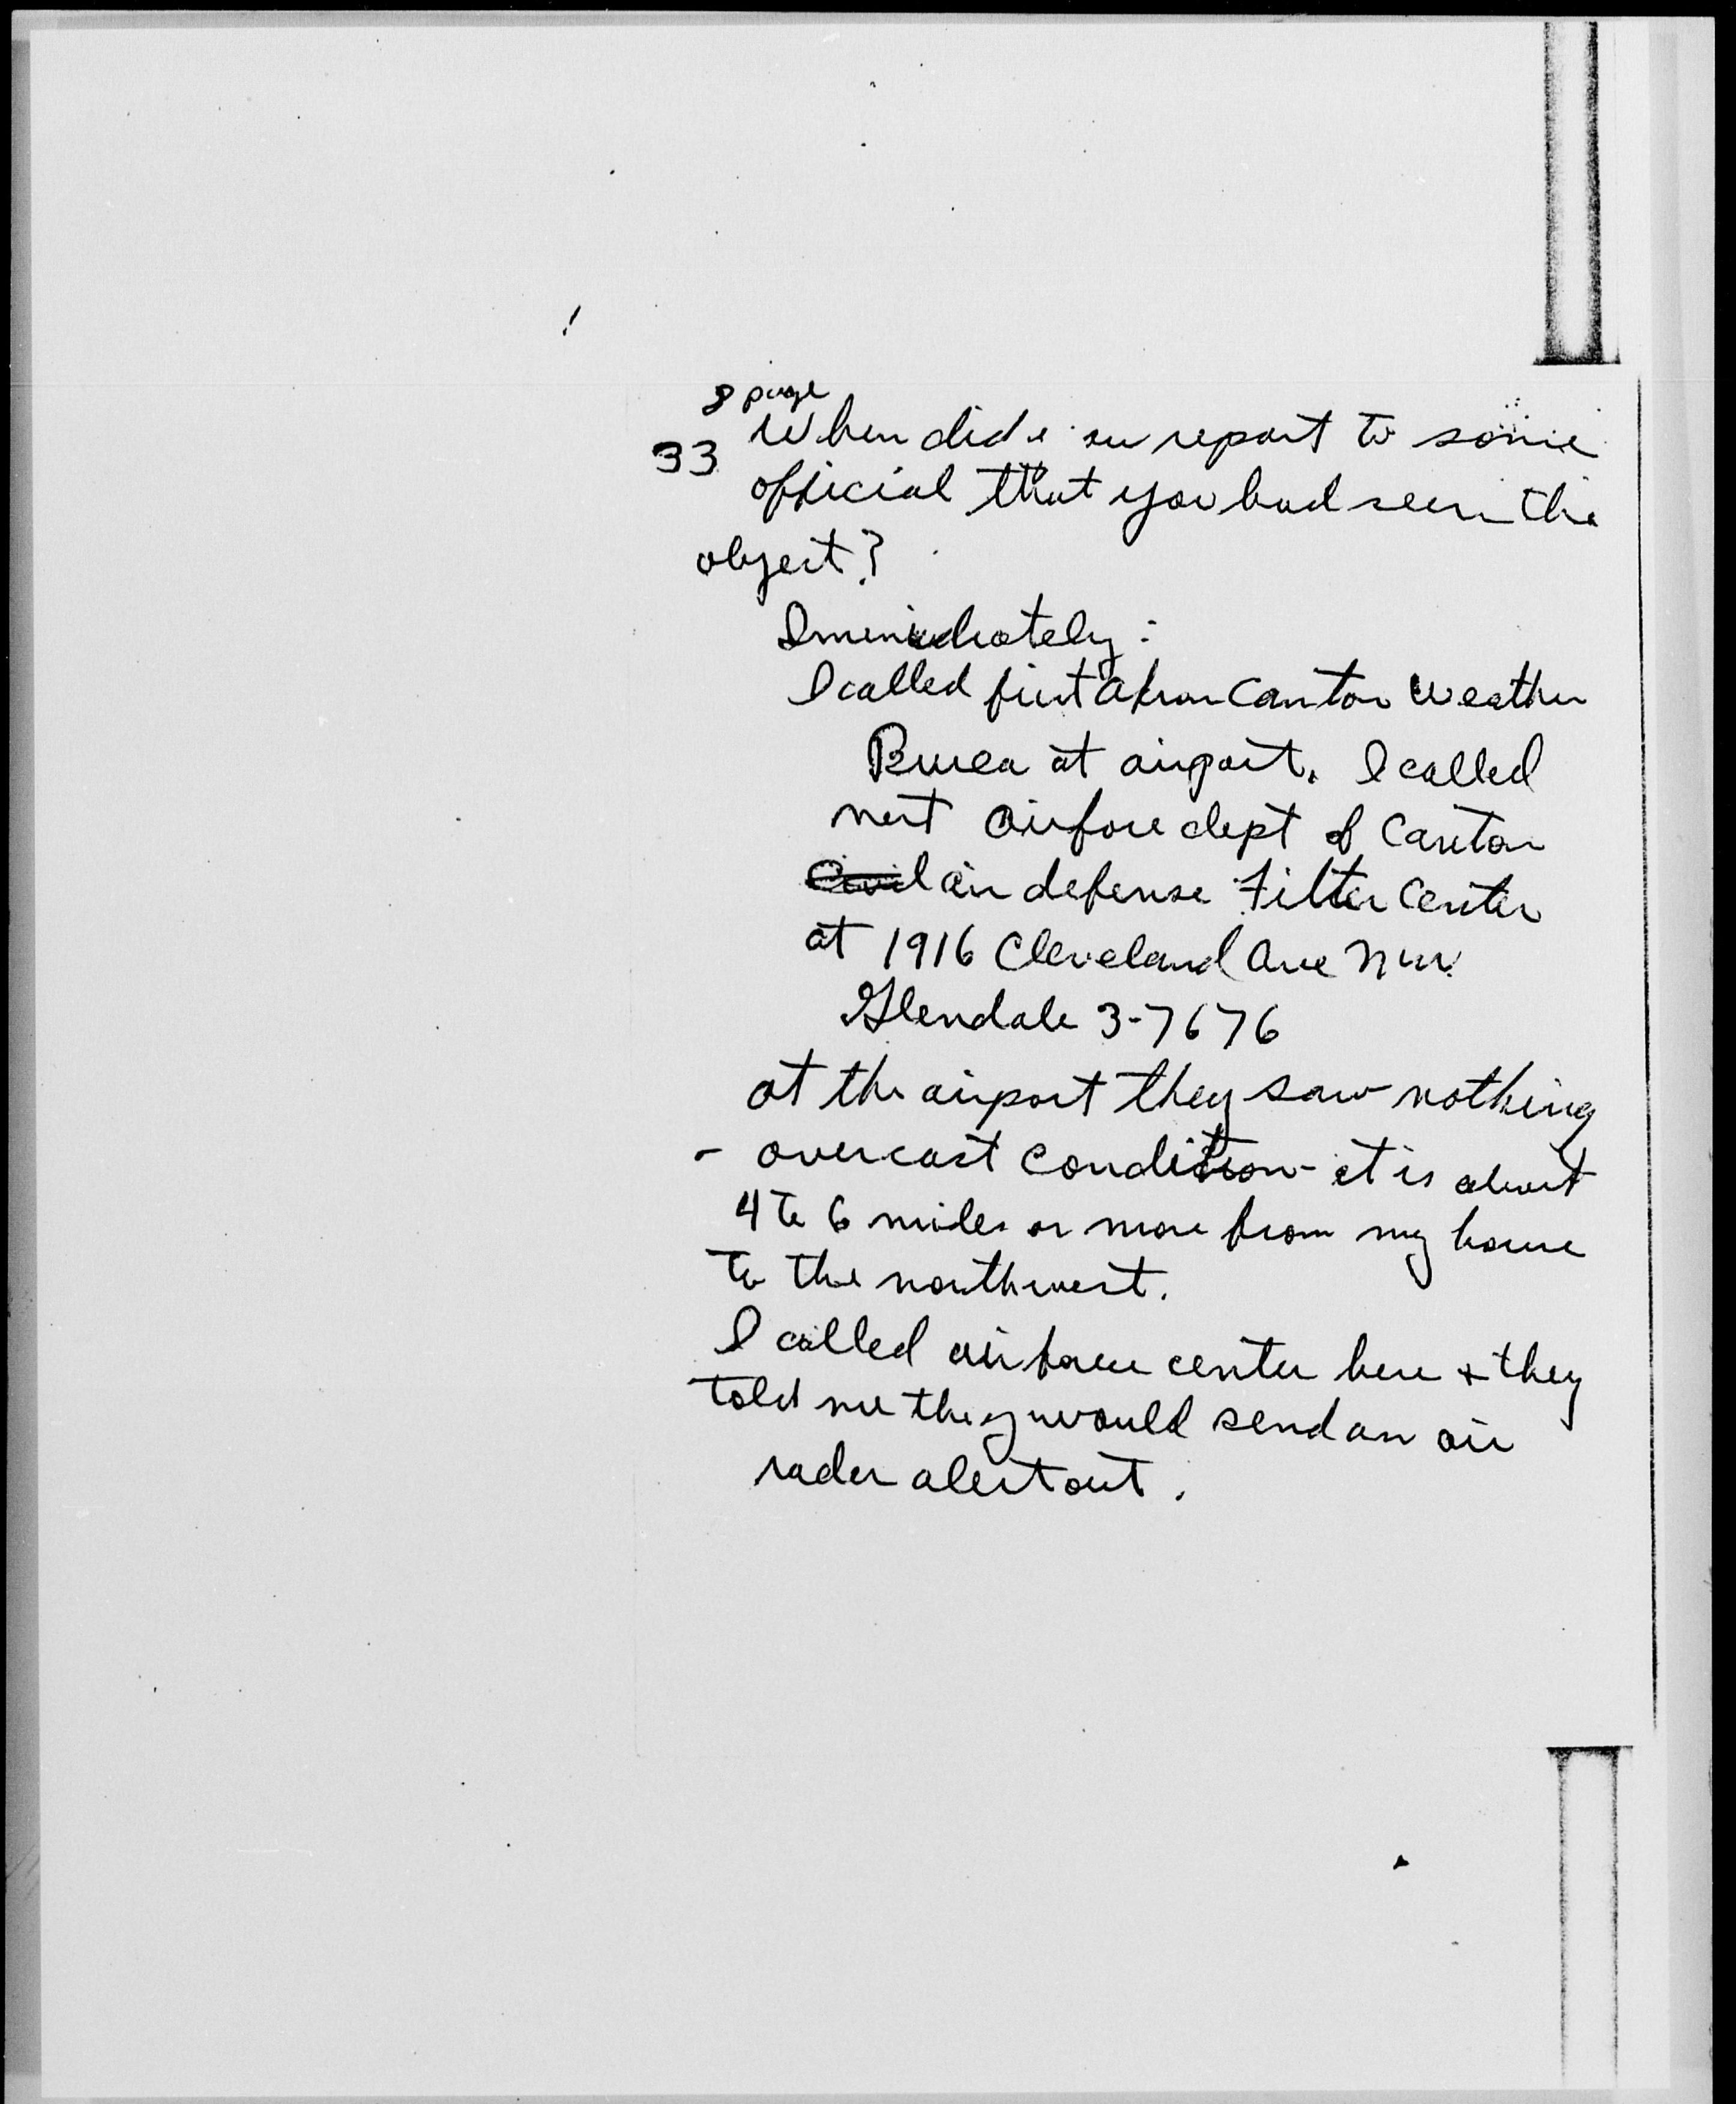 8 page
33 When did you report to some
official that you had seen the
object?
Immediately:
I called first Akron Canton Weather
Burea at airport. I called
next Airforce dept of Canton
Civil air defense Filter Center
at 1916 Cleveland Ave N.W.
Glendale 3-7676
at the airport they saw nothing
- overcast condition - it is about
4 to 6 miles or more from my house
to the northwest.
I called air force center here & they
told me they would send an air
rader alert out.